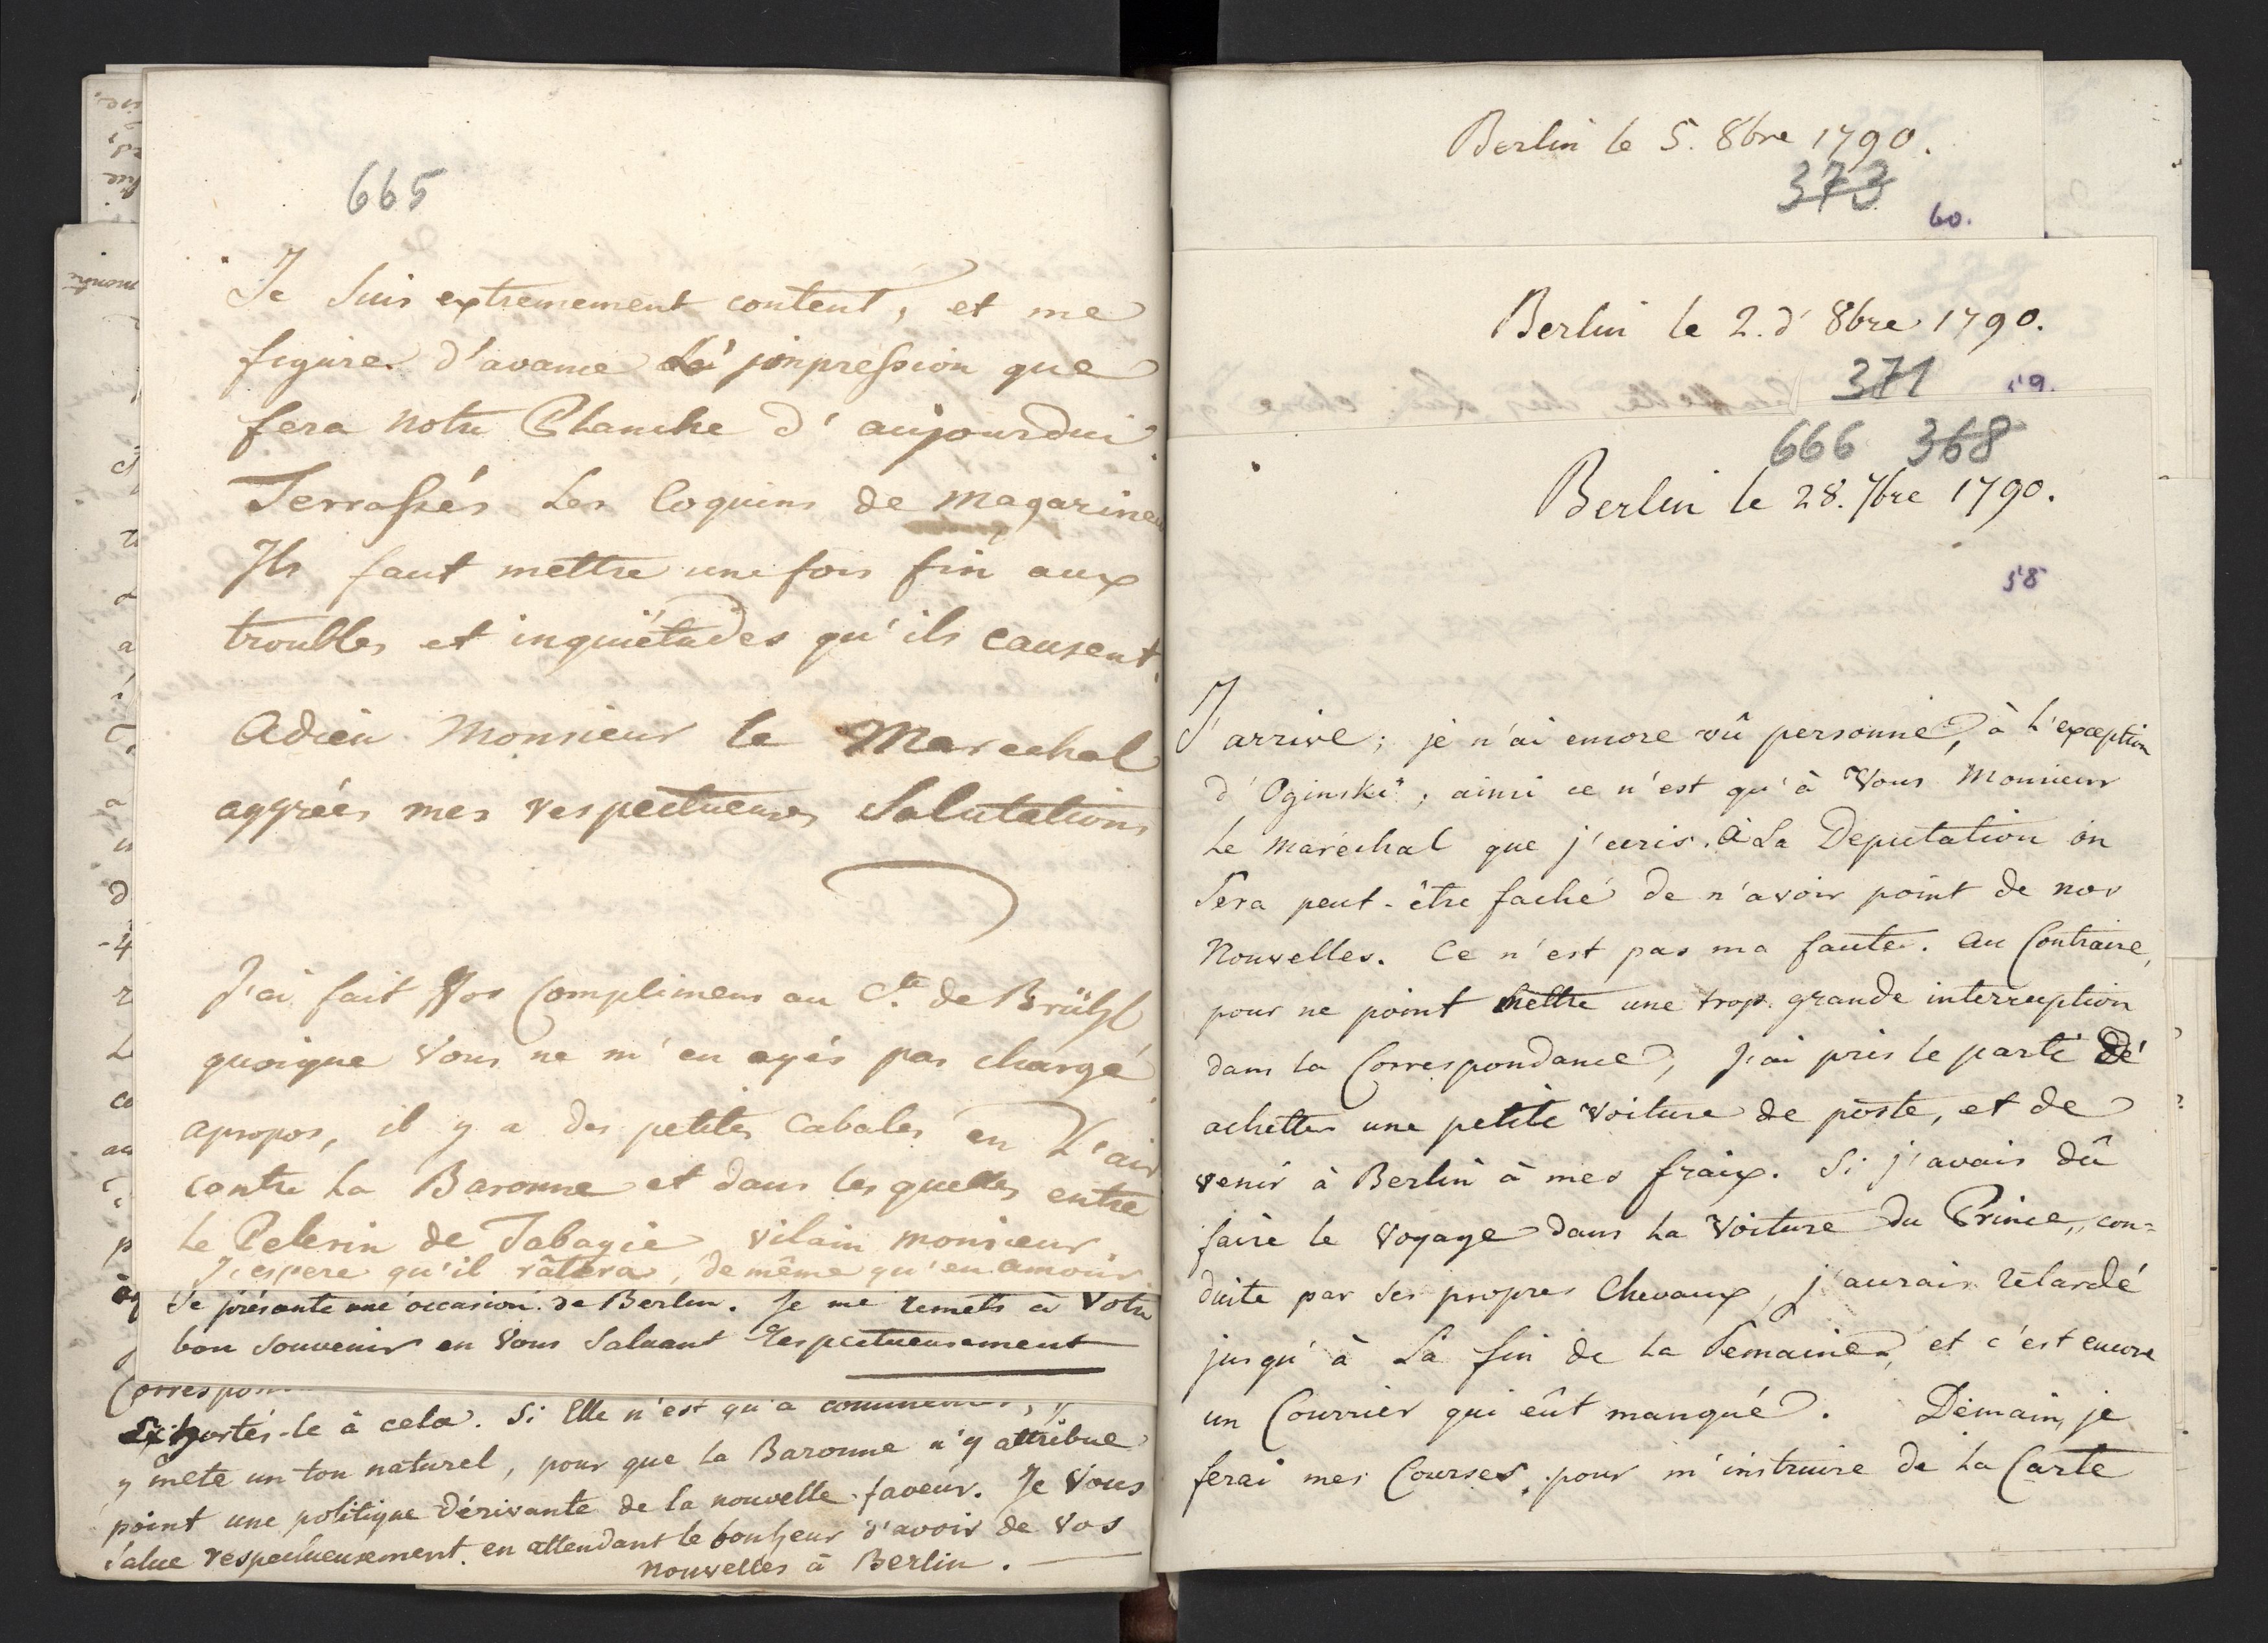 665
Je suis extremement content, et me
figure d'avance l'jmpression que
fera notre Planche d'aujourdui
Terrassés les Coquins de
Ils faut mettre une fois fin aux
troubles et inquiétudes qu'ils causent.
Adieu Monsieur le Marechal
aggréés mes respectueuses Salutations
J'ai fait Vos Complimens au Cte de Brühl
quoique Vous ne m'en ayés pas chargé
apropos, il y a des petites Cabales en L'air
contre La Baronne et dans les quelles entre
Le Pelerin de Tabagie vilain monsieur.
J'espere qu'il râtera, de même qu'en amour
Se présante une occasion de Berlin. Je me remets à Votre
bon souvenir en Vous Saluant Respectueusement
Exhortés-le à cela. Si Elle n'est qu'a
y mete un ton naturel, pour que la Baronne n'y attribue
point une politique dérivante de la nouvelle faveur. Je Vous
salue respectueusement. en attendant le bonheur d'avoir de Vos
nouvelles à Berlin.
Berlin le 5. 8bre 1790.
373
60.
Berlin le 2. d' 8bre 1790.
371
59.
666 368
Berlin le 28. 7bre 1790.
58
J'arrive; je n'ai encore vû personne, à L'exception
d'Oginski; ainsi ce n'est qu'à Vous Monsieur
Le maréchal que j'ecris. À La Deputation on
Sera peut-être faché de n'avoir point de nos
Nouvelles. Ce n'est pas ma faute. Au Contraire,
pour ne point mettre une trop grande interruption
dans la Correspondance, J'ai pris le parti dé
achetter une petite Voiture de poste, et de
venir à Berlin à mes fraix. Si j'avais dû
faire le Voyage dans la Voiture du Prince, con=
duite par ses propres Chevaux, j'aurais retardé
jusqu'à La fin de la Semaine, et c'est encore
un Courrier qui eût manqué. Demain, je
ferai mes Courses, pour m'instruire de la Carte